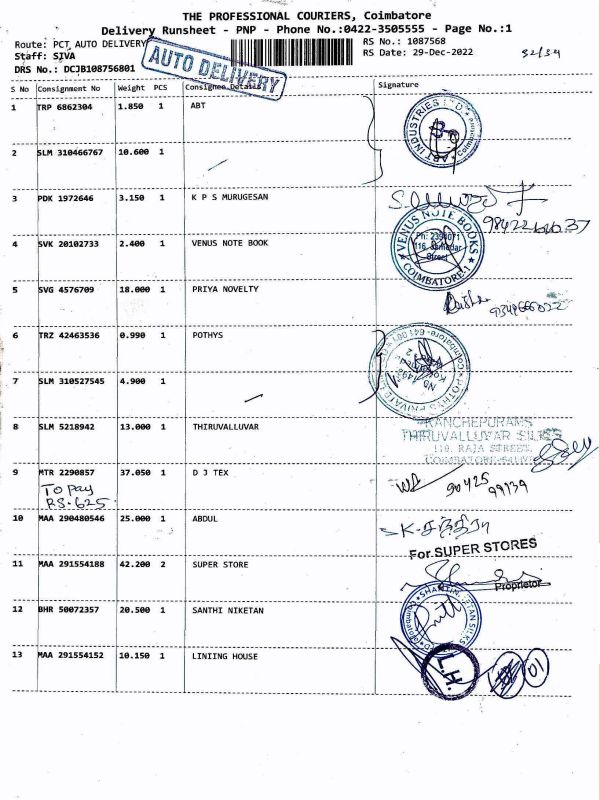 THE PROFESSIONAL COURIERS, Coimbatore
Delivery Runsheet - PNP - Phone No.:0422-3505555 - Page No.:1
Route: PCT AUTO DELIVERY
RS No.: 1087568
Staff: SIVA
RS Date: 29-Dec-2022
32/34
DRS No.: DCJB108756801
AUTO DELIVERY
S No Consignment No Weight PCS Consignee Details Signature
1 TRP 6862304 1.850 1 ABT
ABT INDUSTRIES LTD
Coimbatore
2 SLM 310466767 10.600 1
3 PDK 1972646 3.150 1 K P S MURUGESAN
4 SVK 20102733 2.400 1 VENUS NOTE BOOK
VENUS NOTE BOOKS
Ph: 2394071
Street
COIMBATORE-1
5 SVG 4576709 18.000 1 PRIYA NOVELTY
6 TRZ 42463536 0.990 1 POTHYS
Coimbatore - 641 001
POTHYS PRIVATE
7 SLM 310527545 4.900 1
8 SLM 5218942 13.000 1 THIRUVALLUVAR
KANCHEPURAMS
THIRUVALLUVAR SILKS
110, RAJA STREET,
COIMBATORE-641
9 MTR 2290857 37.050 1 D J TEX
To pay
RS.625
90425
99139
10 MAA 290480546 25.000 1 ABDUL
K-சந்திரா
11 MAA 291554188 42.200 2 SUPER STORE
For SUPER STORES
Proprietor
12 BHR 50072357 20.500 1 SANTHI NIKETAN
13 MAA 291554152 10.150 1 LINIING HOUSE
L.H.
01